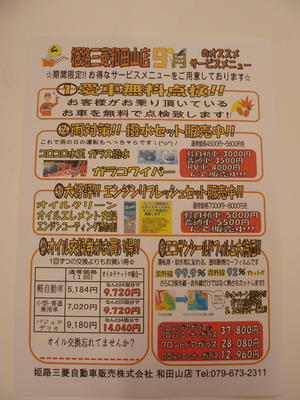 姫路三菱和田山店 9月 のオススメ
サービスメニュー
☆期間限定!!お得なサービスメニューをご用意しております☆
①愛車無料点検!!
お客様がお乗り頂いている
お車を無料で点検致します!!
②雨対策!! 撥水セット販売中!!
これで雨の日の運転もへっちゃらです！(^o^)/
通常価格4500円～5600円
ガラス撥水
ガラコワイパー
軽自動車 3000円
普通車 3500円
RV車 4000円
にて販売中!!
③大好評!! エンジンリフレッシュセット販売中!!
オイルクリーン
オイルエレメント交換
エンジンコーティング
通常価格7000円～8000円
軽自動車 5000円
普通車 5500円
にて販売中!!
④オイル交換券がお買い得!!
1回ずつの交換よりもお買い得☆
通常価格
(1回)
オイルチケットの場合
軽自動車 5,184円 なんと2回分で 9,720円
小型・普通乗用車 7,020円 なんと2回分で 9,720円
パジェロ
デリカ 9,180円 なんと2回分で 14,040円
オイル交換忘れてませんか?
99.9% 92%カット!!
フロントドアガラス+
37,800円
フロントドアガラス 28,080円
12,960円
姫路三菱自動車販売株式会社 和田山店 Tel:079-673-2311